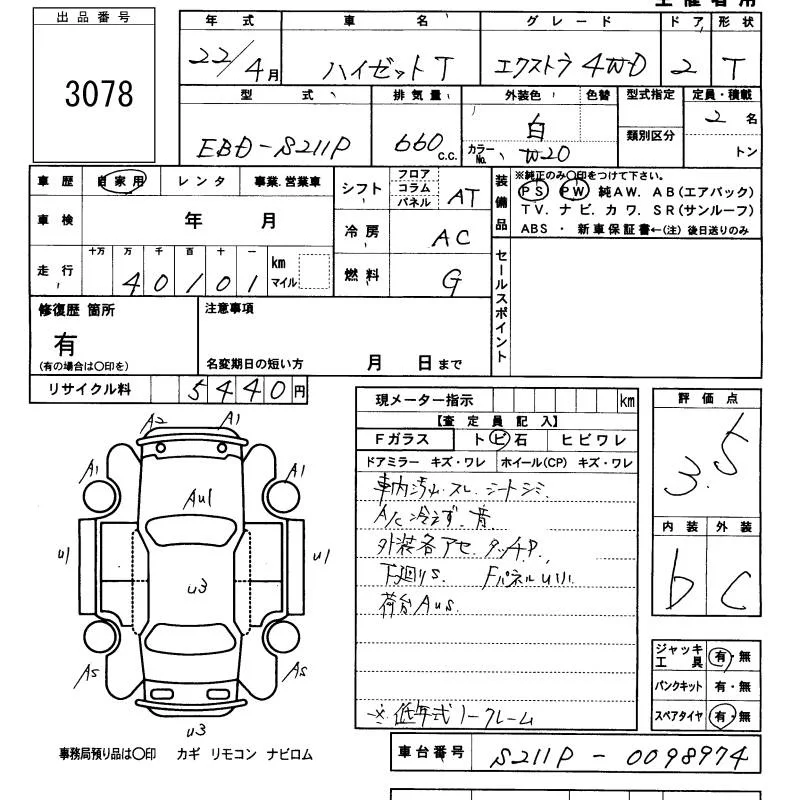 出品番号
3078
年式 車名 グレード ドア 形状
22/4月 ハイゼットT エクストラ 4WD 2 T
型式 排気量 外装色 色替 型式指定 定員・積載
EBD-S211P 660c.c. 白 類別区分 2名
カラーNo. W20 トン
車歴 自家用 レンタ 事業.営業車
シフト フロア コラム パネル AT
装備品 ※純正のみ〇印をつけて下さい。
PS PW 純AW. AB(エアバック)
TV. ナビ. カワ. SR(サンルーフ)
ABS ・ 新車保証書←(注) 後日送りのみ
車検 年 月
冷房 AC
走行 十万 万 千 百 十 一
40101 km マイル
燃料 G
セールスポイント
修復歴 箇所
有
(有の場合は〇印を)
注意事項
名変期日の短い方 月 日まで
リサイクル料 5440円
A2 A1
A1 A1
AU1
U1 U1
U3
AS AS
U3
事務局預り品は〇印 カギ リモコン ナビロム
現メーター指示 km
【査定員記入】
Fガラス トビ石 ヒビワレ
ドアミラー キズ・ワレ ホイール(CP) キズ・ワレ
車内汚れ.スレ.シートシミ
A/C 冷えず.音
外装各アセ.タッチP.
下廻りS. FパネルU小
荷台AUS.
※低年式ノークレーム
評価点
3.5
内装 外装
b C
ジャッキ工具 有・無
パンクキット 有・無
スペアタイヤ 有・無
車台番号 S211P-0098974